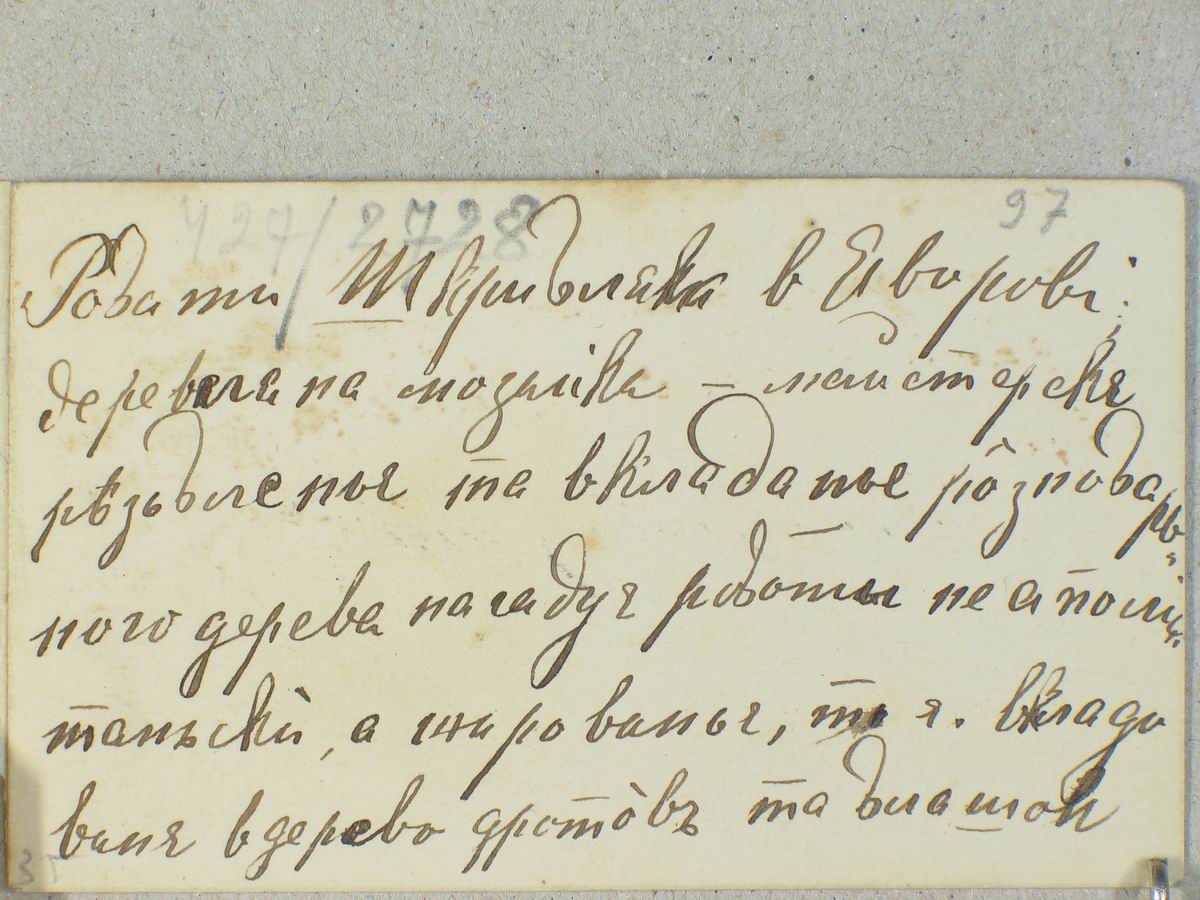 427/2728
97
Роботи Шкрибляка в Яворові:
деревляна мозаіка – майстерскя
рѣзьбленья та вкладанье рôзнобарв-
ного дерева нагадуя роботы неаполи-
таньскій, а жированья, то я. вкладо
ваня в дерево дротôвъ та бляшок